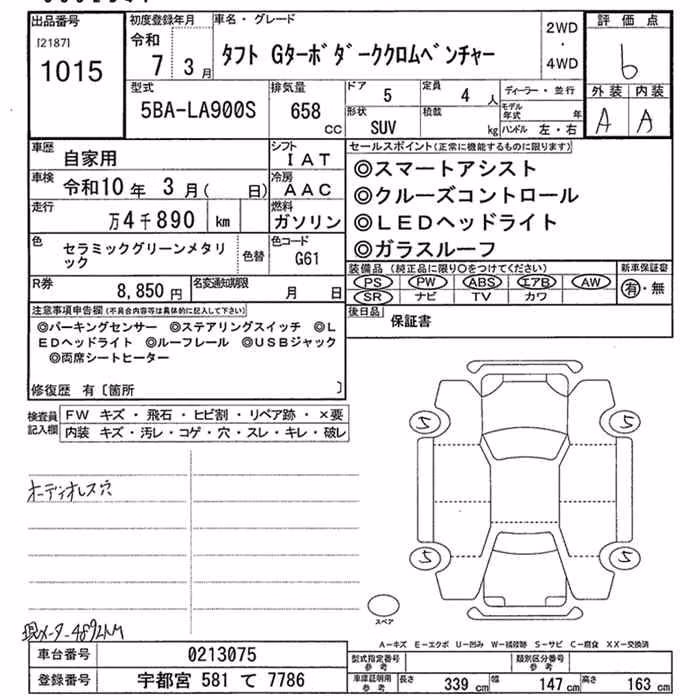 出品番号
[2187]
1015
初度登録年月
令和
7 3月
車名・グレード
タフト Gターボダーククロムベンチャー
2WD
・
4WD
評価点
6
外装 内装
A A
型式
5BA-LA900S
排気量
658
CC
ドア
5
定員
4 人
形状
SUV
積載
kg
ディーラー・並行
モデル年式 年
ハンドル 左・右
車歴
自家用
シフト
IAT
車検
令和10年 3月( 日)
冷房
AAC
走行
万4千890 km
燃料
ガソリン
色
セラミックグリーンメタリ
ック
色替
色コード
G61
R券
8,850円
名変通知期限
月 日
セールスポイント(正常に機能するものに限ります)
◎スマートアシスト
◎クルーズコントロール
◎LEDヘッドライト
◎ガラスルーフ
装備品(純正品に限り○をつけてください)
PS PW ABS エアB AW
SR ナビ TV カワ
新車保証書
有・無
後日品
保証書
注意事項申告欄(不具合内容等は具体的に記入して下さい)
◎パーキングセンサー ◎ステアリングスイッチ ◎L
EDヘッドライト ◎ルーフレール ◎USBジャック
◎両席シートヒーター
修復歴 有〔箇所 〕
検査員
記入欄
FW キズ・飛石・ヒビ割・リペア跡・×要
内装 キズ・汚レ・コゲ・穴・スレ・キレ・破レ
オーディオレス穴
現メーター4892KM
5 5
5 5
スペア
A-キズ E-エクボ U-凹み W-補修跡 S-サビ C-腐食 XX-交換済
車台番号
0213075
登録番号
宇都宮 581 て 7786
型式指定番号
参考
類別区分番号
参考
車庫証明用
参考
長さ 339 cm
幅 147 cm
高さ 163 cm